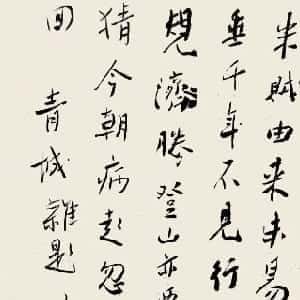 賦由来未易
垂千年不見行
濟勝登山亦
猜今朝病起忽
回
青城雜題